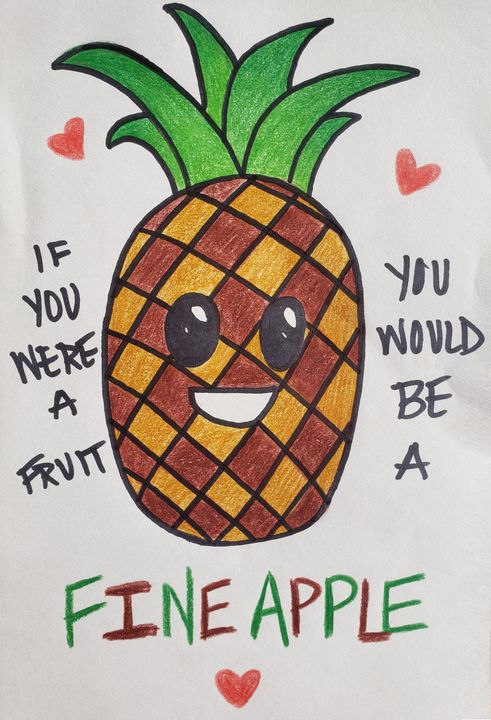 IF
YOU
WERE
A
FRUIT
YOU
WOULD
BE
A
FINE APPLE